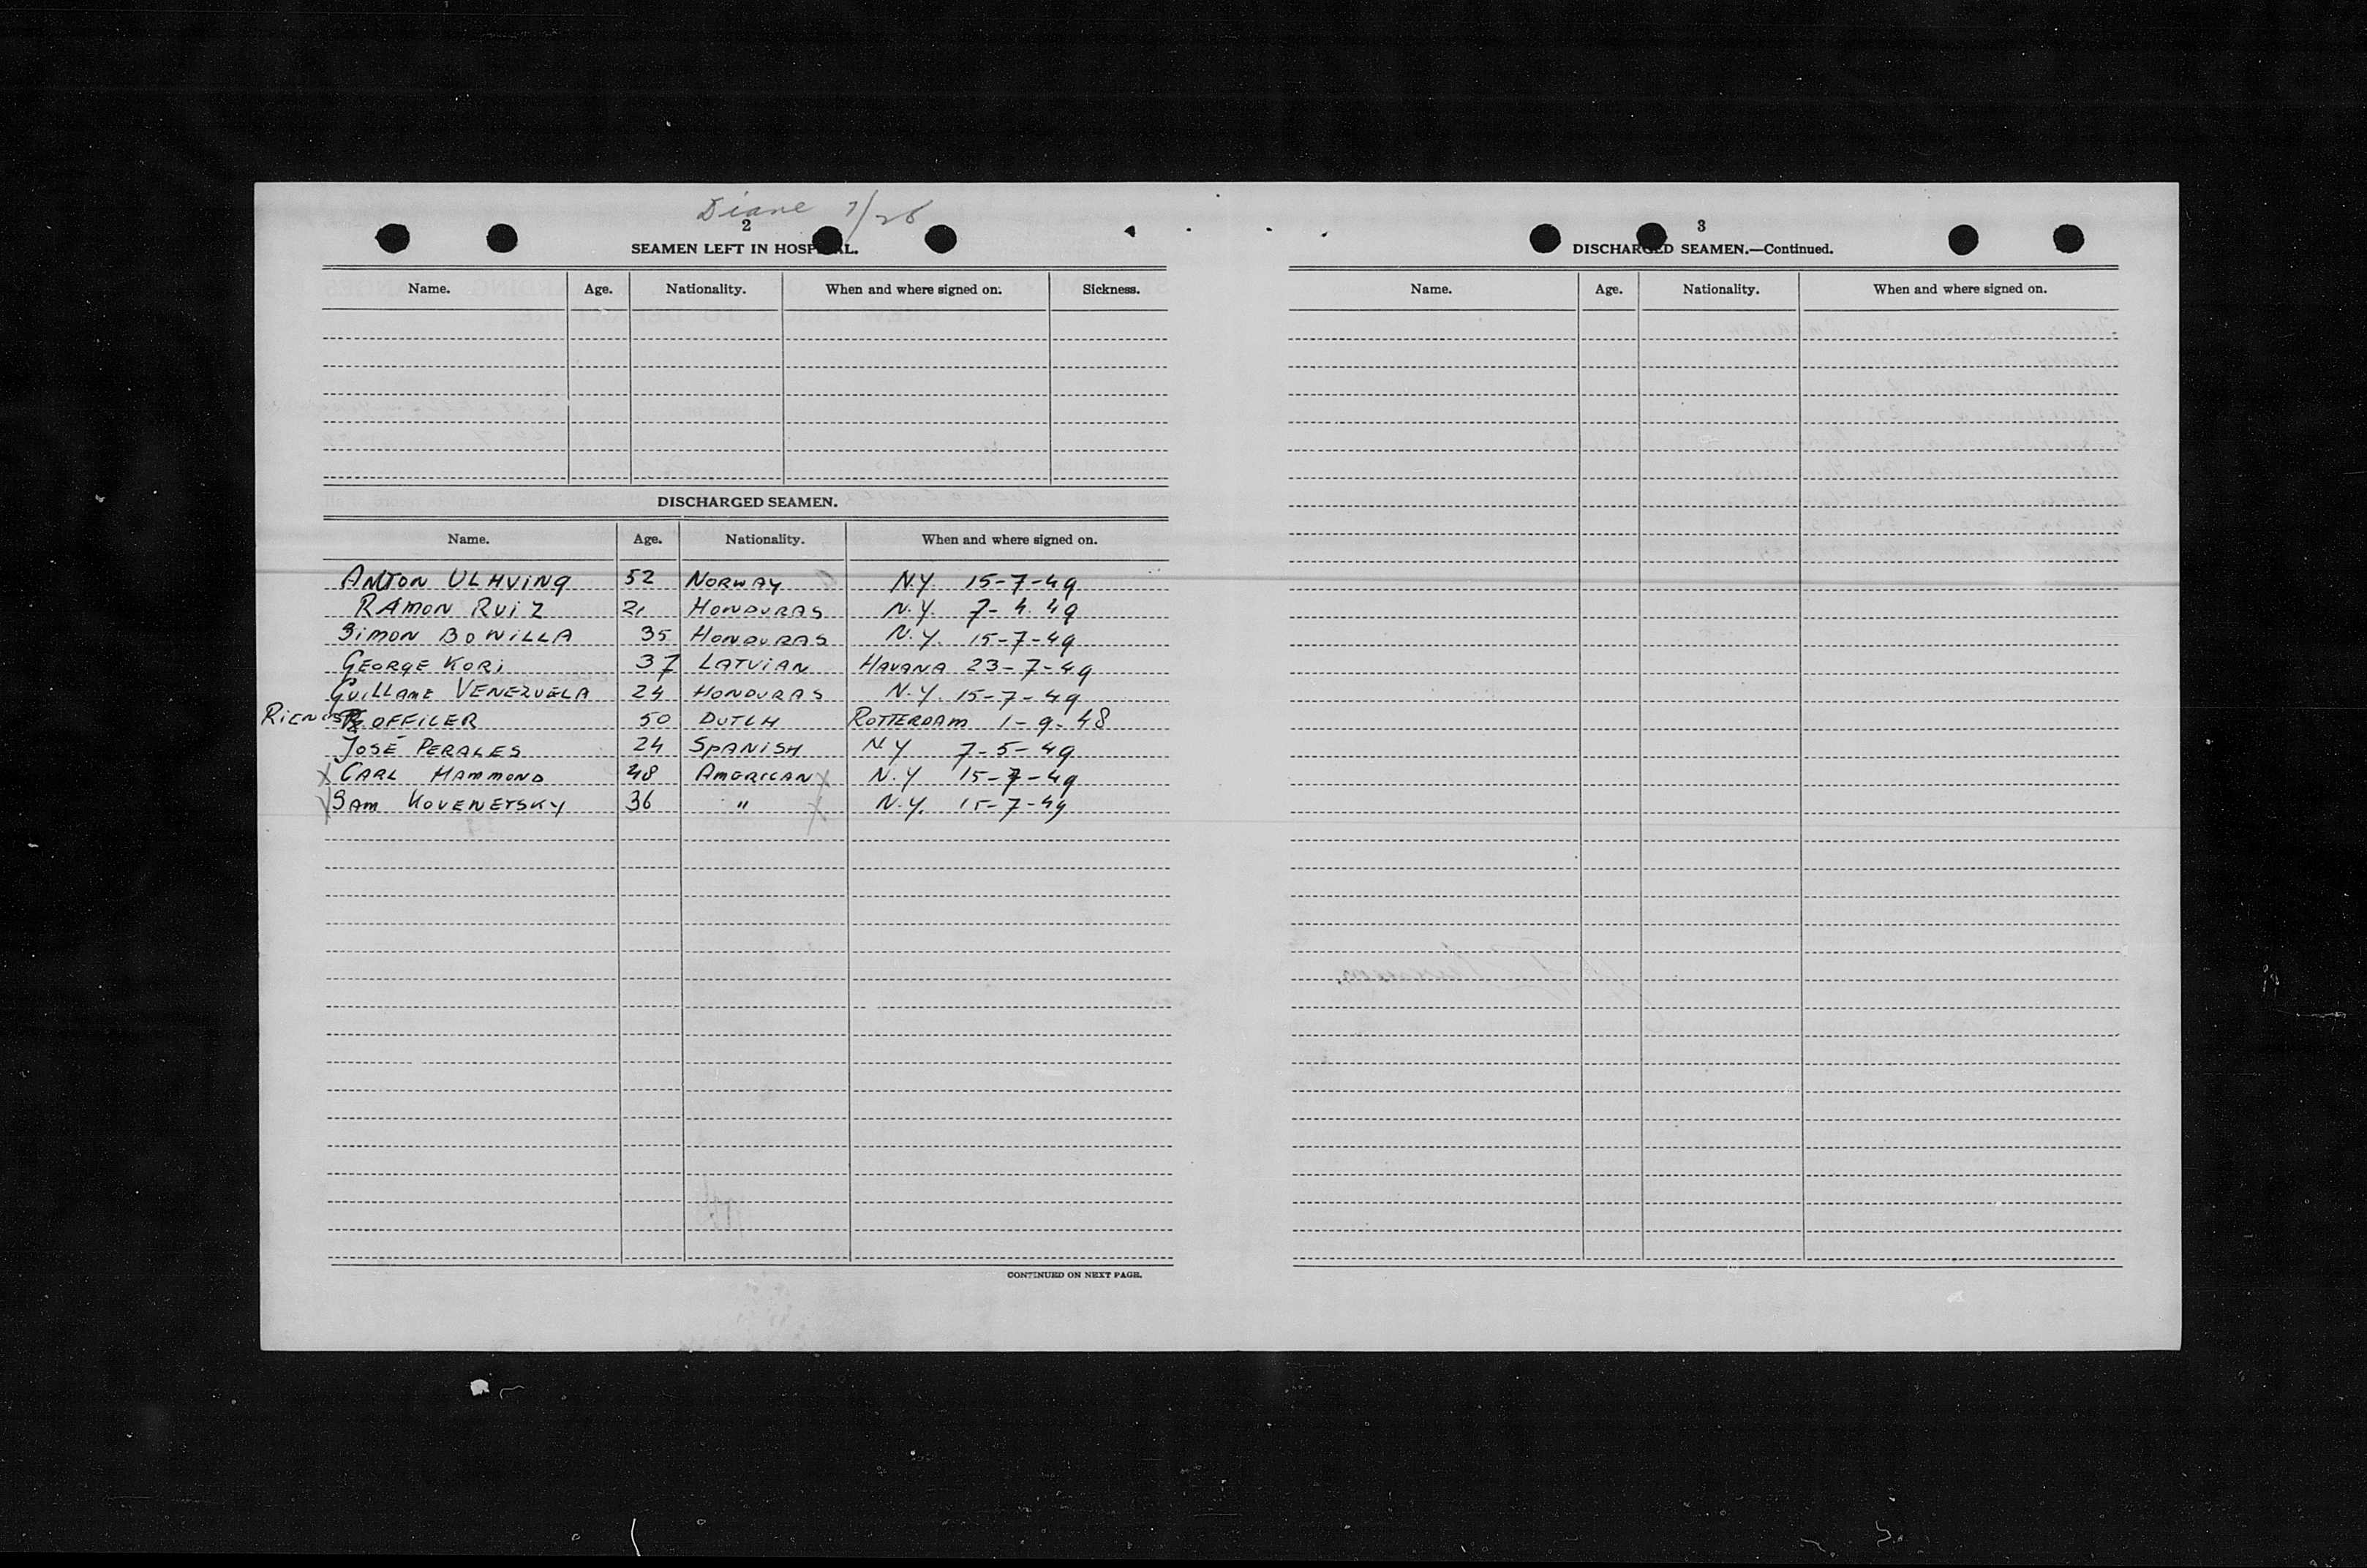 Diane 7/26
2
SEAMEN LEFT IN HOSPITAL.
Name. Age. Nationality. When and where signed on. Sickness.
DISCHARGED SEAMEN.
Name. Age. Nationality. When and where signed on.
ANTON ULHVING 52 NORWAY N.Y. 15-7-49
RAMON RUIZ 21 HONDURAS N.Y. 7-4.49
SIMON BONILLA 35 HONDURAS N.Y. 15-7-49
GEORGE KORI 37 LATVIAN HAVANA 23-7-49
GUILLAME VENEZUELA 24 HONDURAS N.Y. 15-7-49
OFFILER 50 DUTCH ROTTERDAM 1-9-48
JOSÉ PERALES 24 SPANISH N.Y 7-5-49
X CARL HAMMOND 48 AMERICAN X N.Y 15-7-49
SAM KOVENETSKY 36 " N.Y. 15-7-49
CONTINUED ON NEXT PAGE.
3
DISCHARGED SEAMEN.—Continued.
Name. Age. Nationality. When and where signed on.